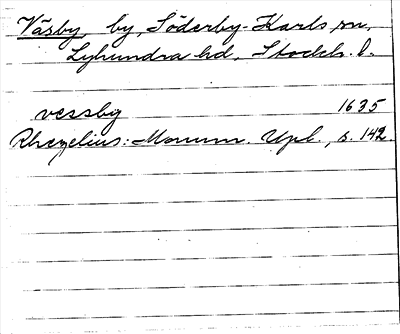 Väsby, by, Söderby-Karls sn,
Lyhundra hd, Stockh. l.
vessby 1635
Rhezelius: Monum. Upl., s. 142.